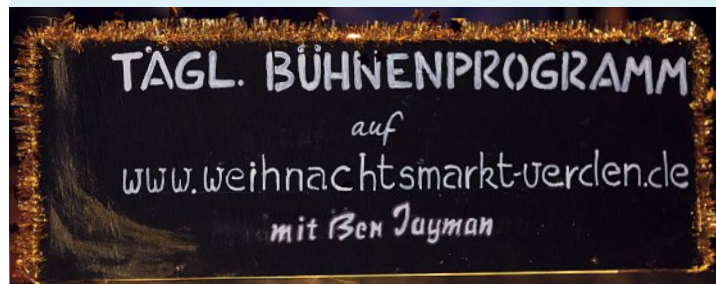 TÄGL. BÜHNENPROGRAMM
auf
www.weihnachtsmarkt-verden.de
mit Ben Jayman